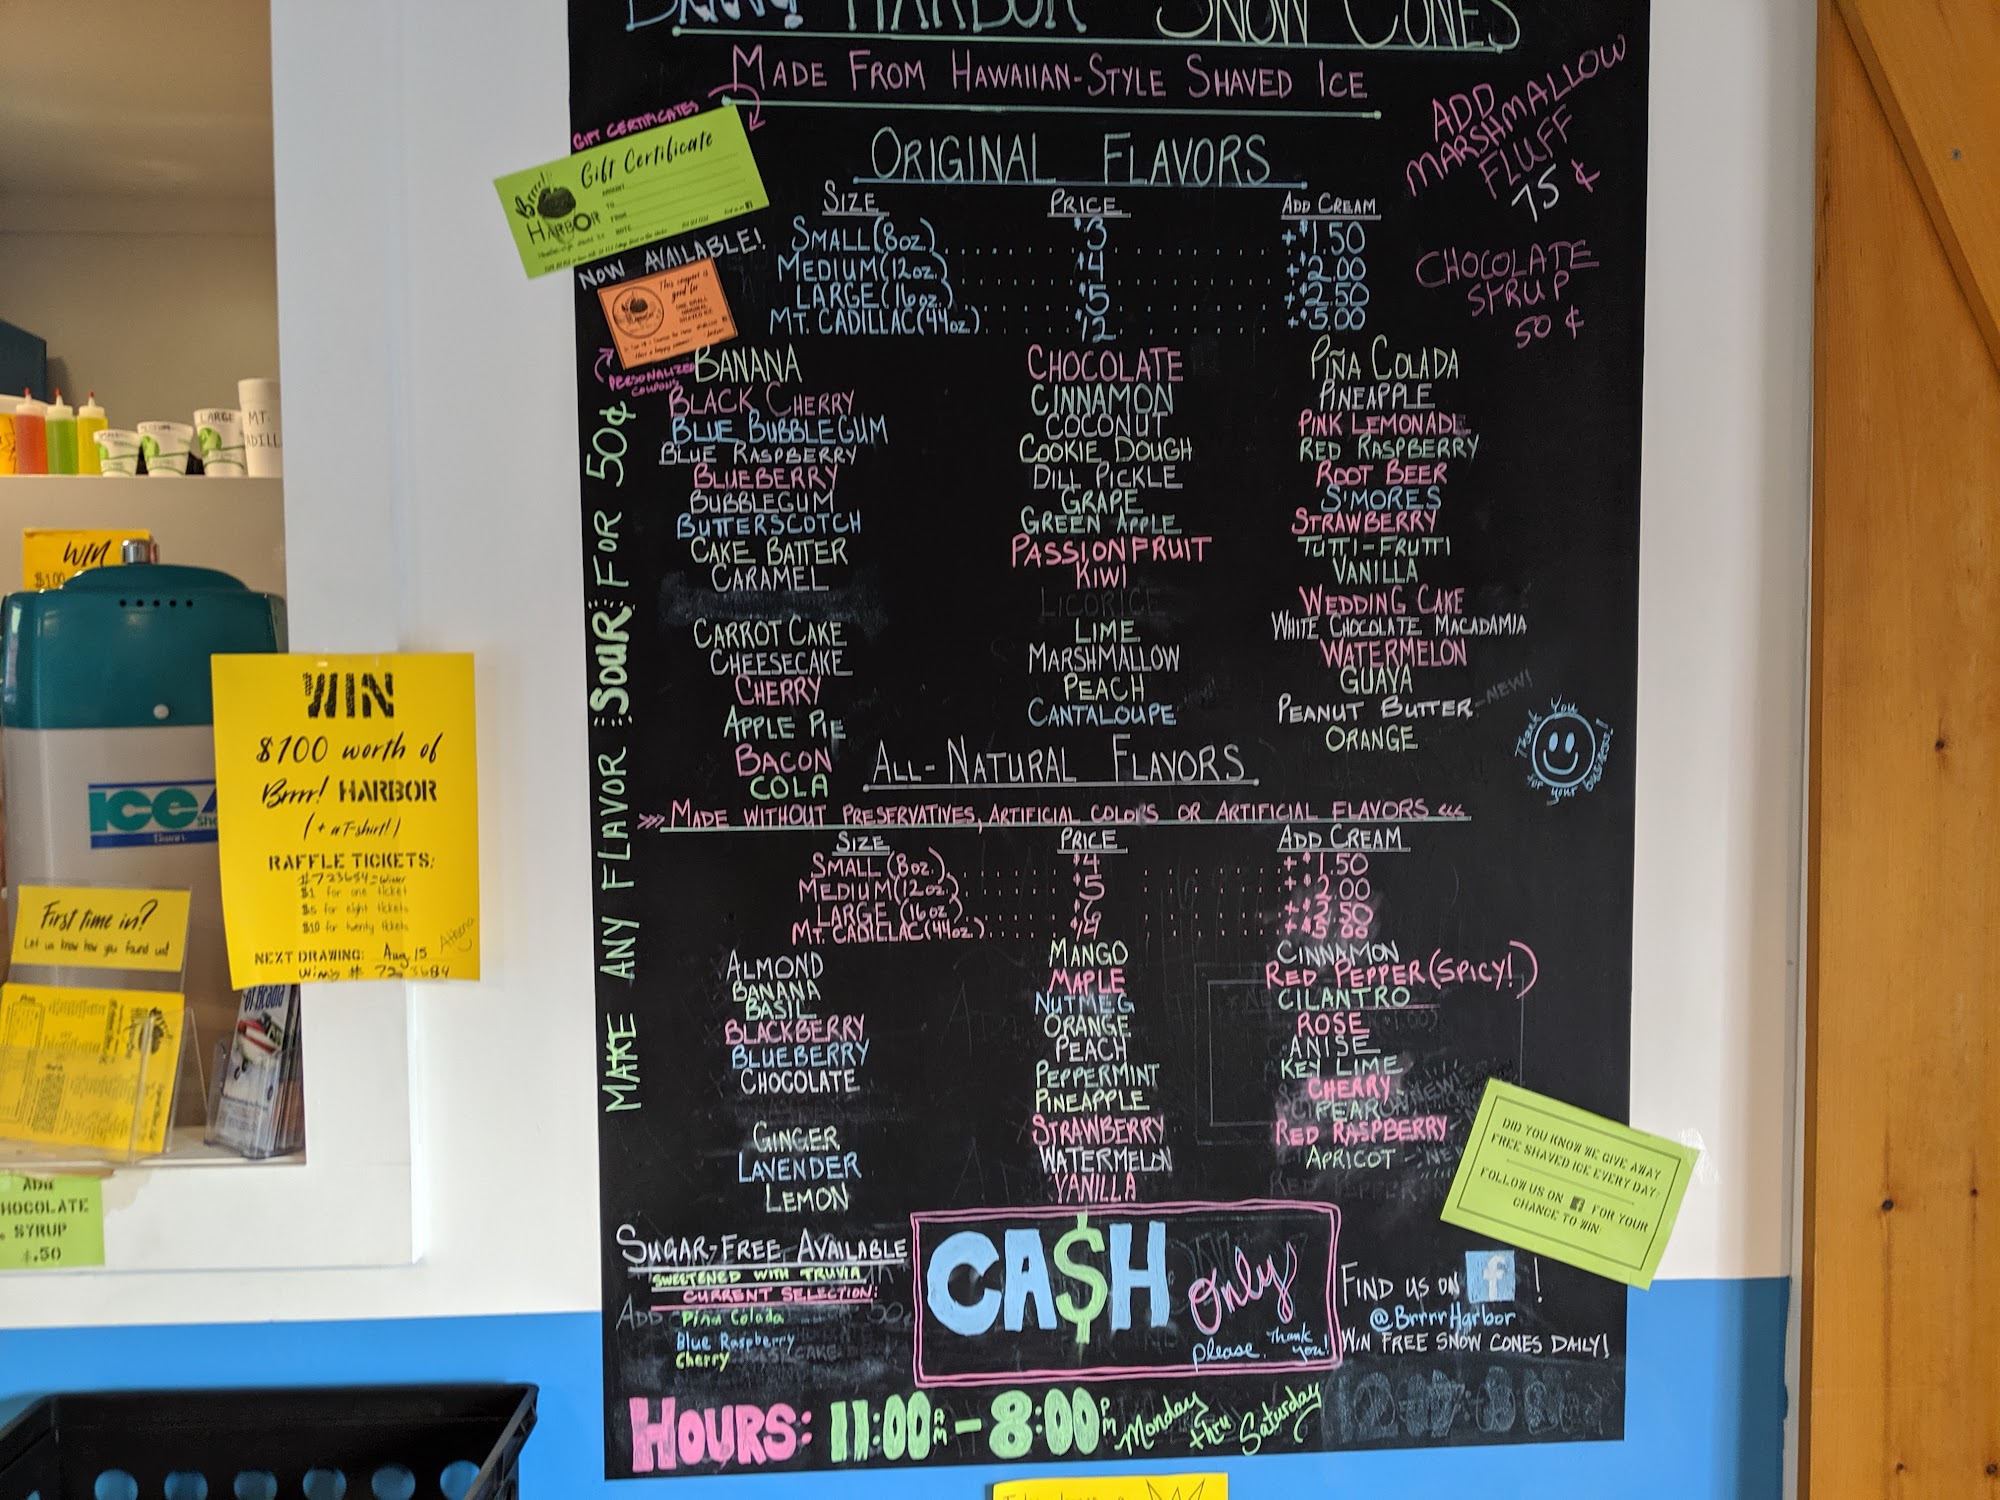 HARBOR SNOW CONES
MADE FROM HAWAIIAN-STYLE SHAVED ICE
GIFT CERTIFICATES
Gift Certificate
AMOUNT
TO
FROM
DATE
Brrrr!
HARBOR
NOW AVAILABLE!
This coupon is
good for
PERSONALIZED
COUPONS
ADD
MARSHMALLOW
FLUFF
75 ¢
CHOCOLATE
SYRUP
50 ¢
ORIGINAL FLAVORS
SIZE PRICE ADD CREAM
SMALL (8oz.) $3 +$1.50
MEDIUM (12oz.) $4 +$2.00
LARGE (16oz.) $5 +$2.50
MT. CADILLAC (44oz.) $12 +$5.00
BANANA
BLACK CHERRY
BLUE BUBBLEGUM
BLUE RASPBERRY
BLUEBERRY
BUBBLEGUM
BUTTERSCOTCH
CAKE BATTER
CARAMEL
CARROT CAKE
CHEESECAKE
CHERRY
APPLE PIE
BACON
COLA
CHOCOLATE
CINNAMON
COCONUT
COOKIE DOUGH
DILL PICKLE
GRAPE
GREEN APPLE
PASSIONFRUIT
KIWI
LICORICE
LIME
MARSHMALLOW
PEACH
CANTALOUPE
PIÑA COLADA
PINEAPPLE
PINK LEMONADE
RED RASPBERRY
ROOT BEER
S'MORES
STRAWBERRY
TUTTI-FRUTTI
VANILLA
WEDDING CAKE
WHITE CHOCOLATE MACADAMIA
WATERMELON
GUAVA
PEANUT BUTTER -NEW!
ORANGE
Thank You
for your business!
MAKE ANY FLAVOR SOUR FOR 50¢
ALL-NATURAL FLAVORS
>>> MADE WITHOUT PRESERVATIVES, ARTIFICIAL COLORS OR ARTIFICIAL FLAVORS <<<
SIZE PRICE ADD CREAM
SMALL (8oz.) $4 +$1.50
MEDIUM (12oz.) $5 +$2.00
LARGE (16oz.) $6 +$2.50
MT. CADILLAC (44oz.) +$5.00
ALMOND
BANANA
BASIL
BLACKBERRY
BLUEBERRY
CHOCOLATE
GINGER
LAVENDER
LEMON
MANGO
MAPLE
NUTMEG
ORANGE
PEACH
PEPPERMINT
PINEAPPLE
STRAWBERRY
WATERMELON
VANILLA
CINNAMON
RED PEPPER (SPICY!)
CILANTRO
ROSE
ANISE
KEY LIME
CHERRY
PEAR
RED RASPBERRY
APRICOT -NEW
SUGAR-FREE AVAILABLE
SWEETENED WITH TRUVIA
CURRENT SELECTION:
Piña Colada
Blue Raspberry
Cherry
CA$H Only
please. Thank you!
FIND US ON f !
@BrrrrHarbor
WIN FREE SNOW CONES DAILY!
DID YOU KNOW WE GIVE AWAY
FREE SHAVED ICE EVERY DAY?
FOLLOW US ON f FOR YOUR
CHANCE TO WIN!
HOURS: 11:00AM - 8:00PM Monday thru Saturday
LARGE
MT.
WIN
$100
ICE
WIN
$100 worth of
Brrrr! HARBOR
(+ a T-shirt!)
RAFFLE TICKETS:
#723684=Winner
$1 for one ticket
$5 for eight tickets
$10 for twenty tickets
NEXT DRAWING: Aug 15
Wins # 723684
First time in?
Let us know how you found us!
ADD
CHOCOLATE
SYRUP
$.50